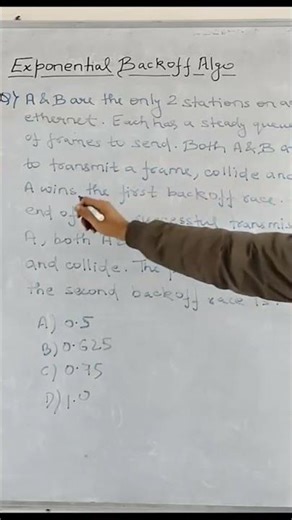 Exponential Backoff Algo
Q) A & B are the only 2 stations on a
ethernet. Each has a steady queue
of frames to send. Both A & B a
to transmit a frame, collide and
A wins the first backoff race.
end of successful transmis
A, both A
and collide. The
the second backoff race is
A) 0.5
B) 0.625
C) 0.75
D) 1.0